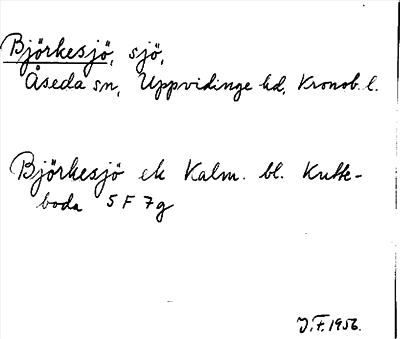 Björkesjö, sjö,
Åseda sn, Uppvidinge hd, Kronob. l.
Björkesjö ek Kalm. bl. Kutte-
boda 5 F 7g
J.F. 1956.